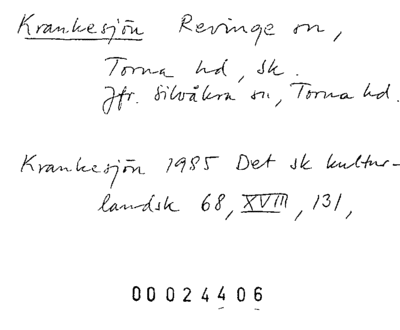 Krankesjön Revinge sn,
Torna hd, sk.
Jfr. Silvåkra sn, Torna hd.
Krankesjön 1985 Det sk kultur-
landsk 68, XVIII, 131,
00024406